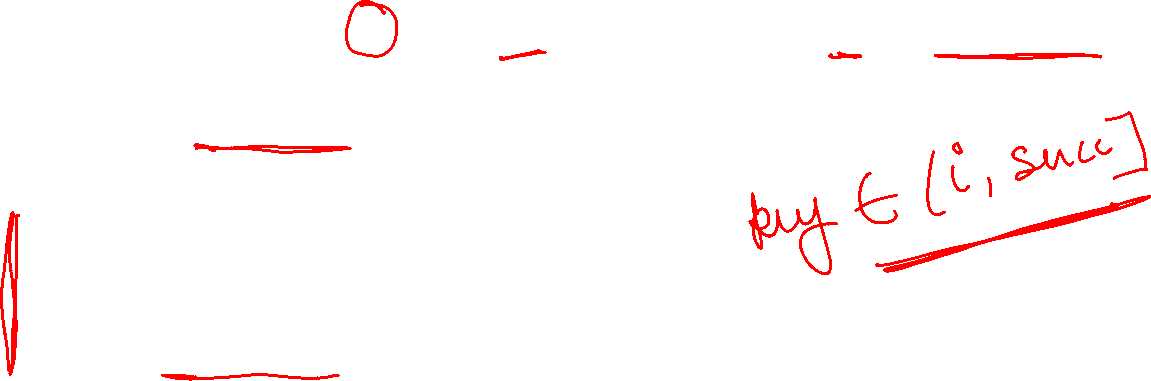 key ∈ (i, succ]